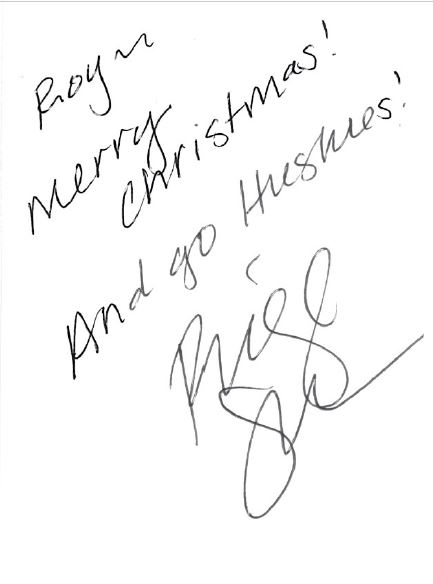 Merry
Christmas!
And go Huskies!